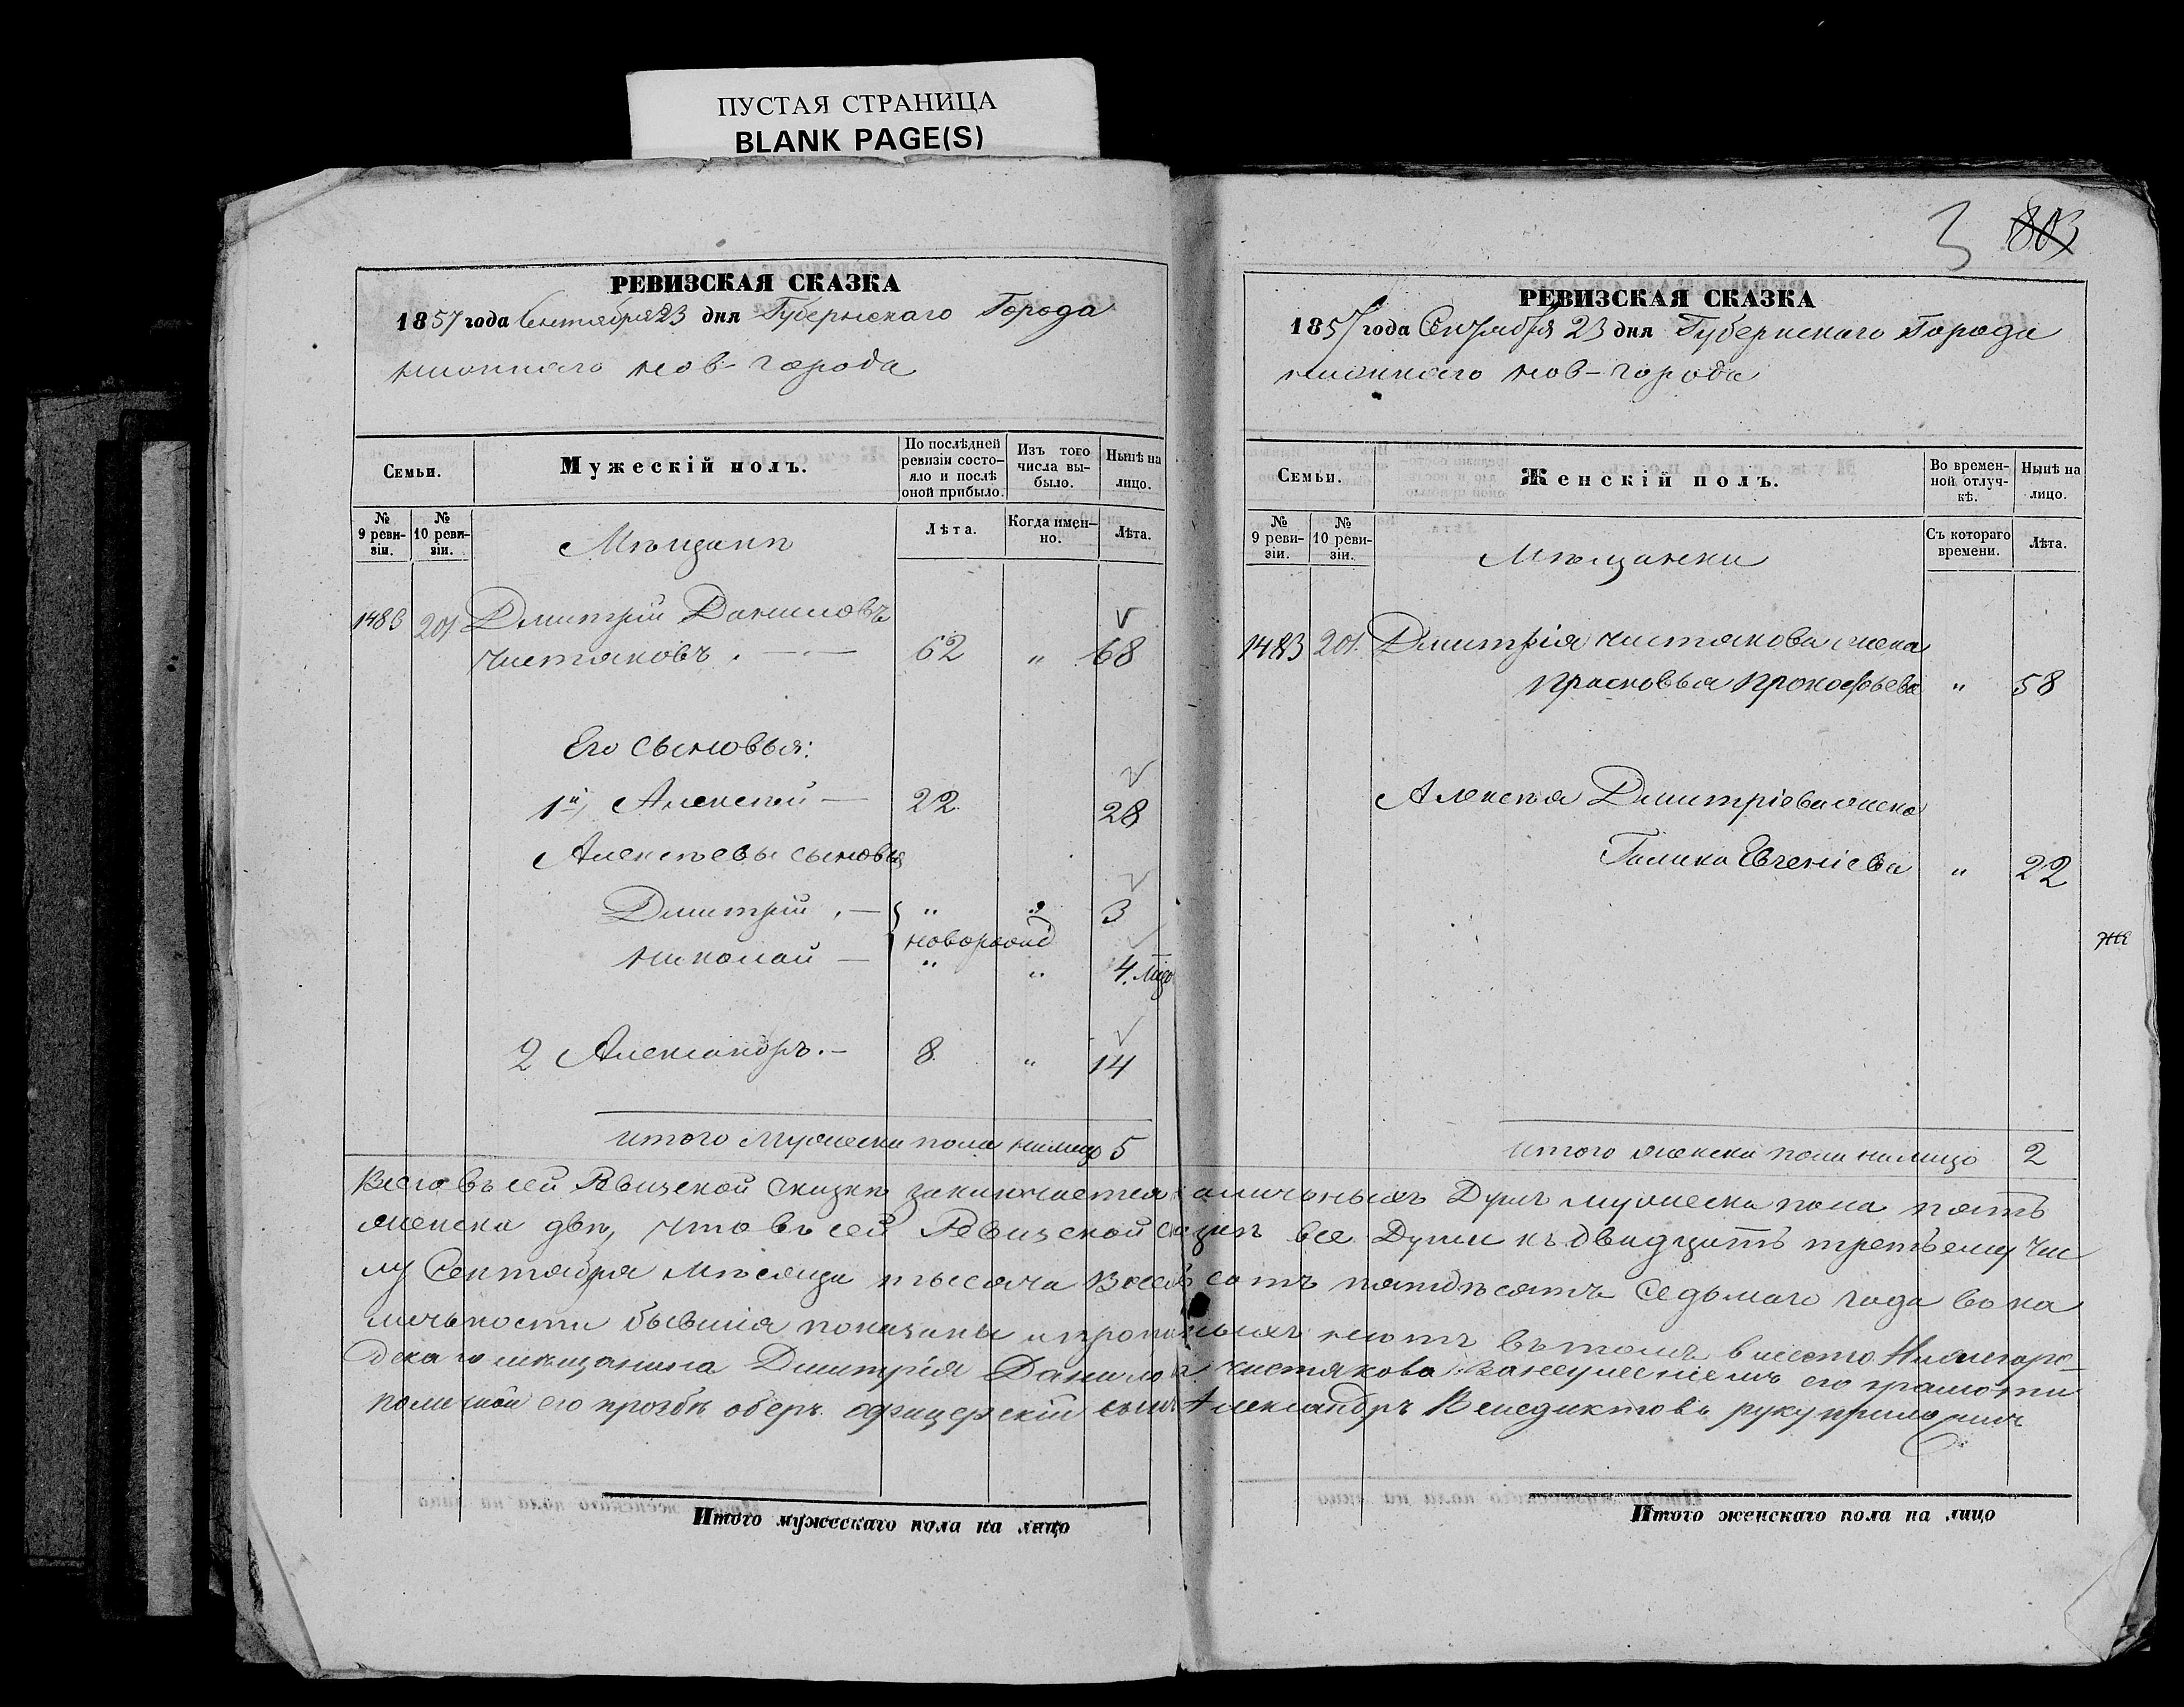 ПУСТАЯ СТРАНИЦА
BLANK PAGE(S)
РЕВИЗСКАЯ СКАЗКА
1857 года Сентября 23 дня Губернскаго Города
нижняго нов-города
Семьи.
Мужескій полъ.
По послѣдней ревизіи состо-яло и послѣ оной прибыло.
Изъ того числа вы-было.
Нынѣ на лицо.
№ 9 реви-зіи.
№ 10 реви-зіи.
Мѣщанѣ
Лѣта.
Когда имен-но.
Лѣта.
1483 201 Дмитрій Даниловъ
Чистяковъ. 62 " 68
Его сыновья:
1й, Алексѣй — 22 28
Алексѣевы сыновья
Дмитрій . — " " 3
новорожд
Николай — " " 4. мѣс
2 Александръ. — 8 " 14
итого мужеска пола налицо 5
Итого мужескаго пола на лицо
3 803
РЕВИЗСКАЯ СКАЗКА
1857 года Сентября 23 дня Губернскаго Города
нижняго нов-города
Семьи.
Женскій полъ.
Во времен-ной отлуч-кѣ.
Нынѣ на лицо.
№ 9 реви-зіи.
№ 10 реви-зіи.
Мѣщанки
Съ котораго времени.
Лѣта.
1483 201. Дмитрія Чистякова жена
Прасковья Прокофьева " 58
Алексѣя Дмитріева жена
Галина Евгеніева " 22
итого женска пола налицо 2
Всего въ сей Ревизской сказкѣ заключается наличныхъ Душъ мужеска пола пять
женска двѣ, что въ сей Ревизской сказкѣ все Души къ двадцать третьему чис
лу Сентября мѣсяца тысяча восемь сотъ пятидѣсятъ седьмаго года во на
личьности бывшія показаны и прописныхъ нѣтъ въ томъ вместо Нижегоро-
дскаго мѣщанина Дмитрія Данилова Чистякова за неумѣніемъ его грамоти
по личной его прозбѣ оберъ офицерскій сынъ Александръ Венедиктовъ руку приложилъ
Итого женскаго пола на лицо